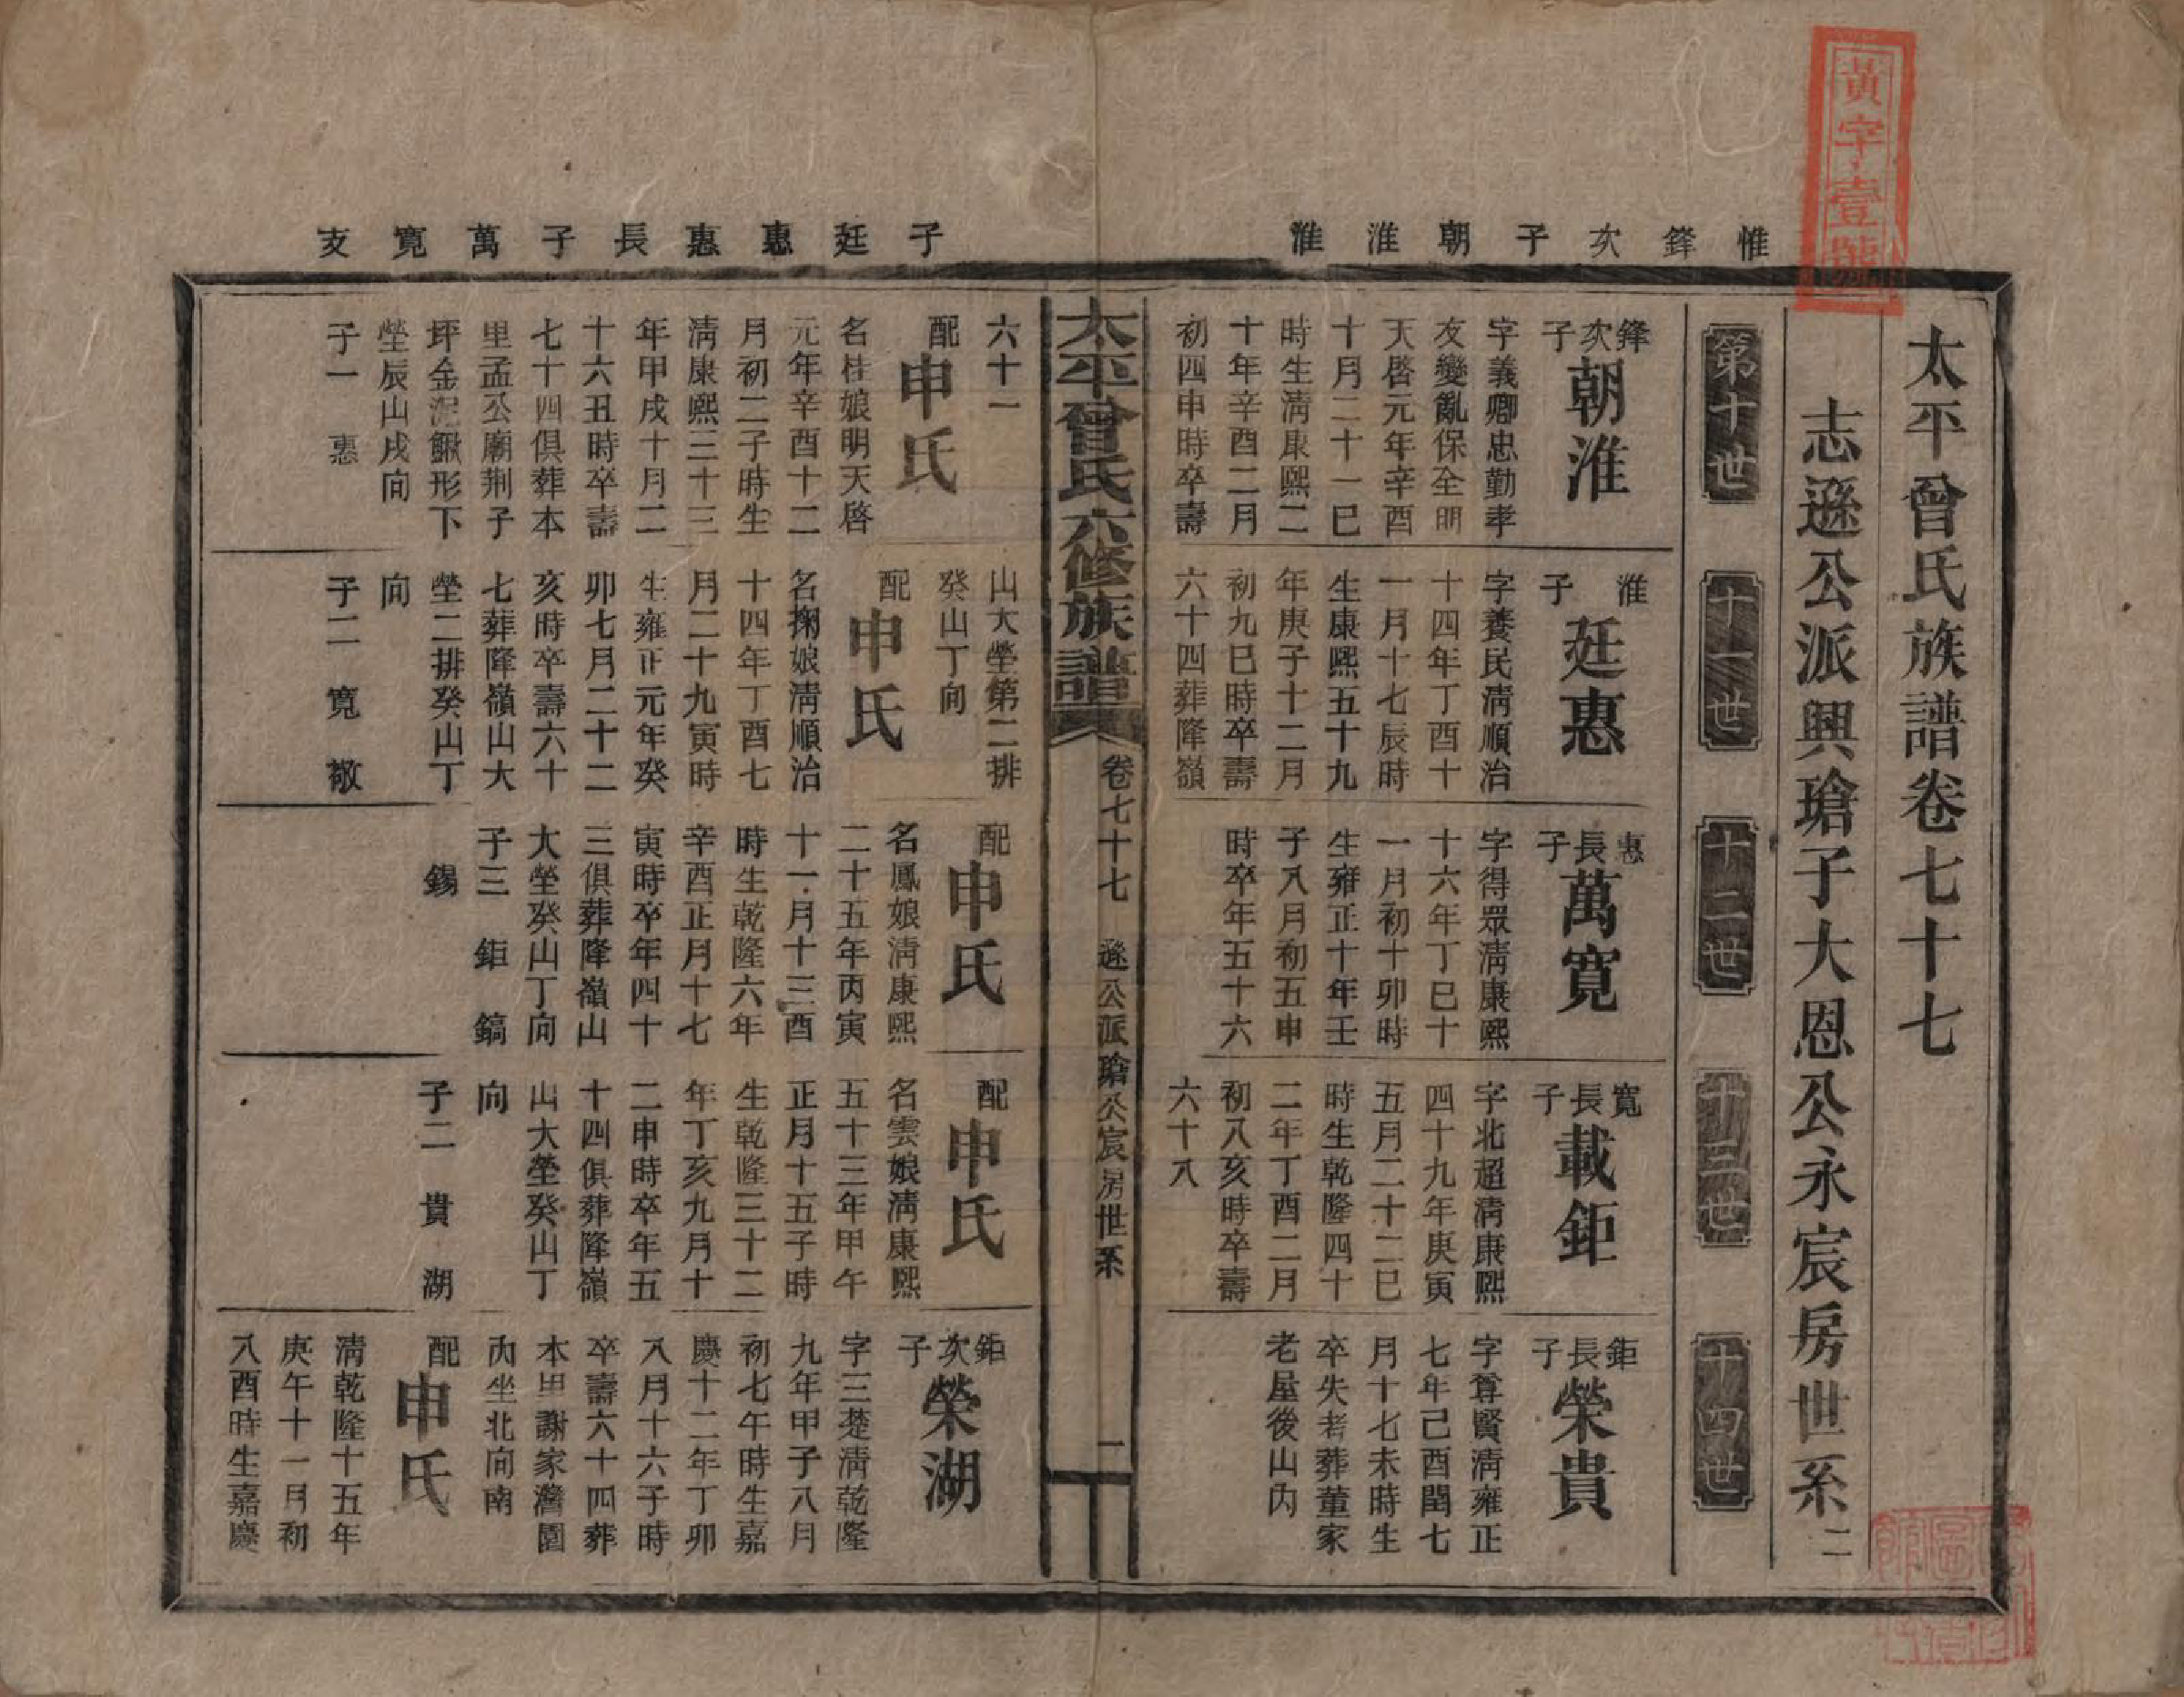 黃字壹號
太平曾氏族譜卷七十七
志遜公派興瑲子大恩公永宸房世系二
第十世
十一世
十二世
十三世
十四世
惟鋒次子朝淮淮
子廷惠惠長子萬寬支
鋒次子
朝淮
字義卿忠勤孝
友變亂保全明
天啓元年辛酉
十月二十一巳
時生淸康熙二
十年辛酉二月
初四申時卒壽
六十一
配
申氏
名桂娘明天啓
元年辛酉十二
月初二子時生
淸康熙三十三
年甲戌十月二
十六丑時卒壽
七十四俱葬本
里孟公廟荆子
坪金泥鰍形下
塋辰山戌向
子一 惠
淮子
廷惠
字養民淸順治
十四年丁酉十
一月十七辰時
生康熙五十九
年庚子十二月
初九巳時卒壽
六十四葬隆嶺
山大塋第二排
癸山丁向
配
申氏
名掬娘淸順治
十四年丁酉七
月二十九寅時
生雍正元年癸
卯七月二十二
亥時卒壽六十
七葬隆嶺山大
塋二排癸山丁
向
子二 寬 敬
惠長子
萬寬
字得眾淸康熙
十六年丁巳十
一月初十卯時
生雍正十年壬
子八月初五申
時卒年五十六
配
申氏
名鳳娘淸康熙
二十五年丙寅
十一月十三酉
時生乾隆六年
辛酉正月十七
寅時卒年四十
三俱葬隆嶺山
大塋癸山丁向
子三 鉅 鎬
錫
寬長子
載鉅
字北超淸康熙
四十九年庚寅
五月二十二巳
時生乾隆四十
二年丁酉二月
初八亥時卒壽
六十八
配
申氏
名雲娘淸康熙
五十三年甲午
正月十五子時
生乾隆三十二
年丁亥九月十
二申時卒年五
十四俱葬隆嶺
山大塋癸山丁
向
子二 貴 湖
鉅長子
榮貴
字尊賢淸雍正
七年己酉閏七
月十七未時生
卒失考葬董家
老屋後山內
鉅次子
榮湖
字三楚淸乾隆
九年甲子八月
初七午時生嘉
慶十二年丁卯
八月十六子時
卒壽六十四葬
本里謝家灣園
內坐北向南
配
申氏
淸乾隆十五年
庚午十一月初
八酉時生嘉慶
太平曾氏六修族譜
卷七十七 遜公派瑲公宸房世系
二